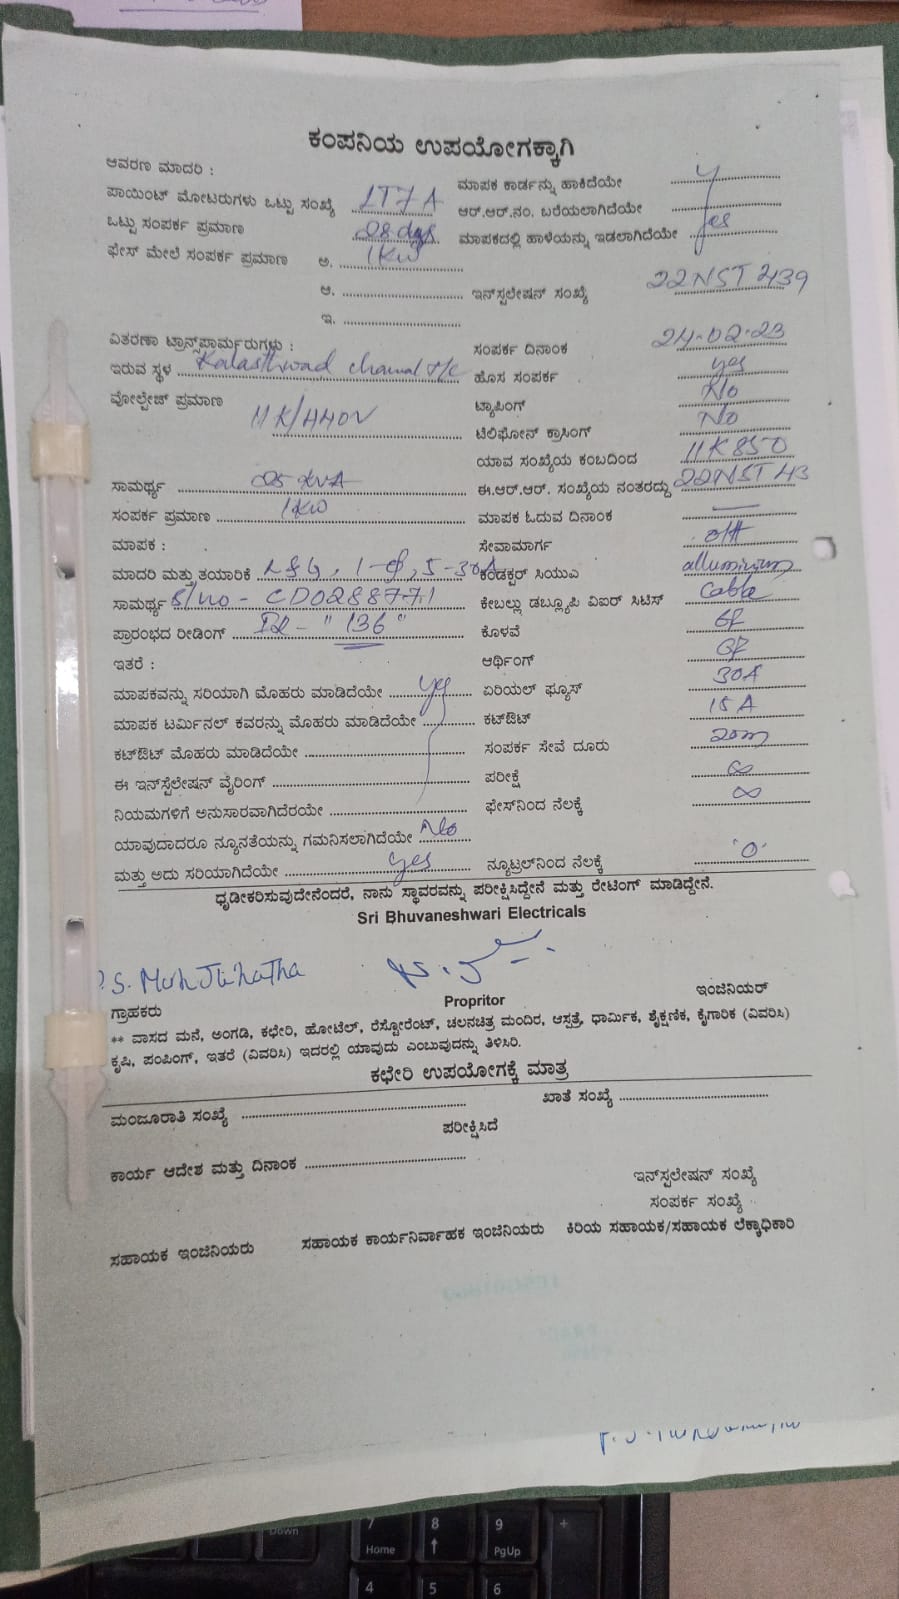 ಕಂಪನಿಯ ಉಪಯೋಗಕ್ಕಾಗಿ
ಆವರಣ ಮಾದರಿ :
ಮಾಪಕ ಕಾರ್ಡನ್ನು ಹಾಕಿದೆಯೇ y
ಪಾಯಿಂಟ್ ಮೋಟರುಗಳು ಒಟ್ಟು ಸಂಖ್ಯೆ LT7A ಆರ್.ಆರ್.ನಂ. ಬರೆಯಲಾಗಿದೆಯೇ
ಒಟ್ಟು ಸಂಪರ್ಕ ಪ್ರಮಾಣ 28 days ಮಾಪಕದಲ್ಲಿ ಹಾಳೆಯನ್ನು ಇಡಲಾಗಿದೆಯೇ yes
ಫೇಸ್ ಮೇಲೆ ಸಂಪರ್ಕ ಪ್ರಮಾಣ ಅ. 1KW
ಆ. ಇನ್‌ಸ್ಟಲೇಷನ್ ಸಂಖ್ಯೆ 22NST 439
ಇ.
ವಿತರಣಾ ಟ್ರಾನ್ಸ್‌ಪಾರ್ಮರುಗಳು : ಸಂಪರ್ಕ ದಿನಾಂಕ 24-02-23
ಇರುವ ಸ್ಥಳ Kalasthwad chamal T/C ಹೊಸ ಸಂಪರ್ಕ yes
ವೋಲ್ಟೇಜ್ ಪ್ರಮಾಣ 11K/440V ಟ್ಯಾಪಿಂಗ್ No
ಟೆಲಿಫೋನ್ ಕ್ರಾಸಿಂಗ್ No
ಯಾವ ಸಂಖ್ಯೆಯ ಕಂಬದಿಂದ 11K850
ಸಾಮರ್ಥ್ಯ 25 KVA ಈ.ಆರ್.ಆರ್. ಸಂಖ್ಯೆಯ ನಂತರದ್ದು 22NST 43
ಸಂಪರ್ಕ ಪ್ರಮಾಣ 1KW ಮಾಪಕ ಓದುವ ದಿನಾಂಕ —
ಮಾಪಕ : ಸೇವಾಮಾರ್ಗ O/H
ಮಾದರಿ ಮತ್ತು ತಯಾರಿಕೆ L&G, 1-Φ, 5-30A ಕಂಡಕ್ಟರ್ ಸಿಯುಎ alluminium
ಸಾಮರ್ಥ್ಯ S/no - CD0288771 ಕೇಬಲ್ಲು ಡಬ್ಲ್ಯೂಪಿ ವಿಐರ್ ಸಿಟಿಸ್ Cable
ಪ್ರಾರಂಭದ ರೀಡಿಂಗ್ IR - "136" ಕೊಳವೆ GI
ಇತರೆ : ಆರ್ಥಿಂಗ್ GI
ಮಾಪಕವನ್ನು ಸರಿಯಾಗಿ ಮೊಹರು ಮಾಡಿದೆಯೇ yes ಏರಿಯಲ್ ಫ್ಯೂಸ್ 30A
ಮಾಪಕ ಟರ್ಮಿನಲ್ ಕವರನ್ನು ಮೊಹರು ಮಾಡಿದೆಯೇ ಕಟ್‌ಔಟ್ 15A
ಕಟ್‌ಔಟ್ ಮೊಹರು ಮಾಡಿದೆಯೇ ಸಂಪರ್ಕ ಸೇವೆ ದೂರು 20m
ಈ ಇನ್‌ಸ್ಟೆಲೇಷನ್ ವೈರಿಂಗ್ ಪರೀಕ್ಷೆ ∞
ನಿಯಮಗಳಿಗೆ ಅನುಸಾರವಾಗಿದೆರಯೇ ಫೇಸ್‌ನಿಂದ ನೆಲಕ್ಕೆ ∞
ಯಾವುದಾದರೂ ನ್ಯೂನತೆಯನ್ನು ಗಮನಿಸಲಾಗಿದೆಯೇ No
ಮತ್ತು ಅದು ಸರಿಯಾಗಿದೆಯೇ yes ನ್ಯೂಟ್ರಲ್‌ನಿಂದ ನೆಲಕ್ಕೆ '0'
ಧೃಡೀಕರಿಸುವುದೇನೆಂದರೆ, ನಾನು ಸ್ಥಾವರವನ್ನು ಪರೀಕ್ಷಿಸಿದ್ದೇನೆ ಮತ್ತು ರೇಟಿಂಗ್ ಮಾಡಿದ್ದೇನೆ.
Sri Bhuvaneshwari Electricals
ಗ್ರಾಹಕರು Propritor ಇಂಜಿನಿಯರ್
** ವಾಸದ ಮನೆ, ಅಂಗಡಿ, ಕಛೇರಿ, ಹೋಟೆಲ್, ರೆಸ್ಟೋರೆಂಟ್, ಚಲನಚಿತ್ರ ಮಂದಿರ, ಆಸ್ಪತ್ರೆ, ಧಾರ್ಮಿಕ, ಶೈಕ್ಷಣಿಕ, ಕೈಗಾರಿಕ (ವಿವರಿಸಿ)
ಕೃಷಿ, ಪಂಪಿಂಗ್, ಇತರೆ (ವಿವರಿಸಿ) ಇದರಲ್ಲಿ ಯಾವುದು ಎಂಬುವುದನ್ನು ತಿಳಿಸಿರಿ.
ಕಛೇರಿ ಉಪಯೋಗಕ್ಕೆ ಮಾತ್ರ
ಮಂಜೂರಾತಿ ಸಂಖ್ಯೆ ಖಾತೆ ಸಂಖ್ಯೆ
ಪರೀಕ್ಷಿಸಿದೆ
ಕಾರ್ಯ ಆದೇಶ ಮತ್ತು ದಿನಾಂಕ
ಇನ್‌ಸ್ಪಲೇಷನ್ ಸಂಖ್ಯೆ
ಸಂಪರ್ಕ ಸಂಖ್ಯೆ
ಸಹಾಯಕ ಇಂಜಿನಿಯರು ಸಹಾಯಕ ಕಾರ್ಯನಿರ್ವಾಹಕ ಇಂಜಿನಿಯರು ಕಿರಿಯ ಸಹಾಯಕ/ಸಹಾಯಕ ಲೆಕ್ಕಾಧಿಕಾರಿ
Down 7 Home 8 9 PgUp +
4 5 6